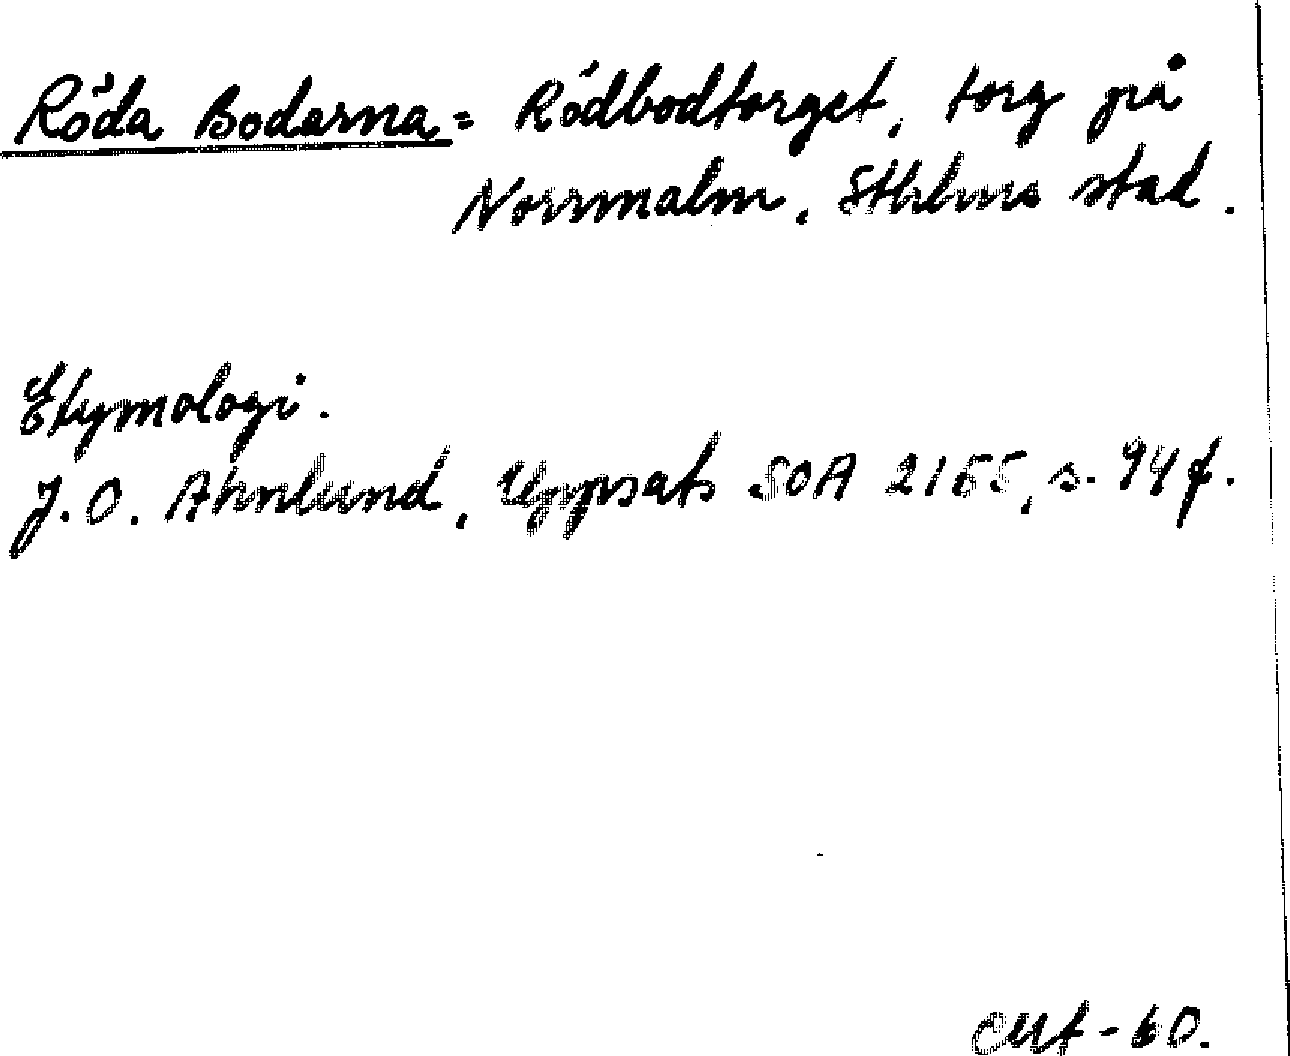 Röda Bodarna = Rödbodtorget, torg på
Norrmalm, Sthlms stad.
Etymologi.
J. O. Ahnlund, Uppsats SOA 2155, s. 94 f.
60.